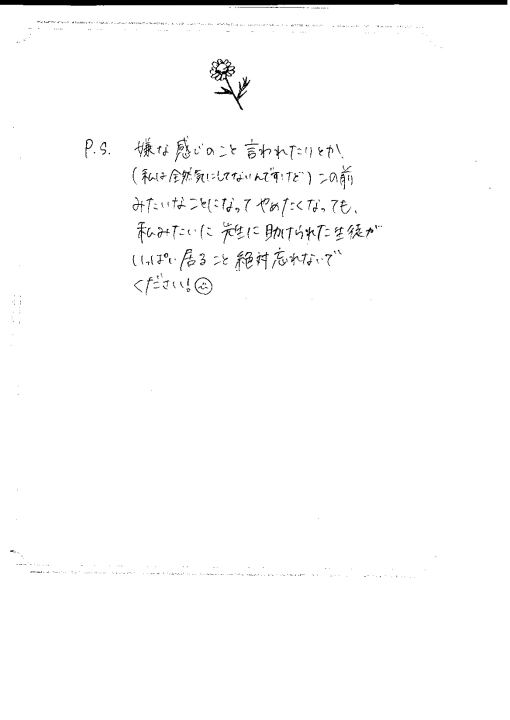 P.S. 嫌な感じのこと言われたりとか、
(私は全然気にしてないんですけど)この前
みたいなことになってやめたくなっても、
私みたいに先生に助けられた生徒が
いっぱい居ること絶対忘れないで
ください!